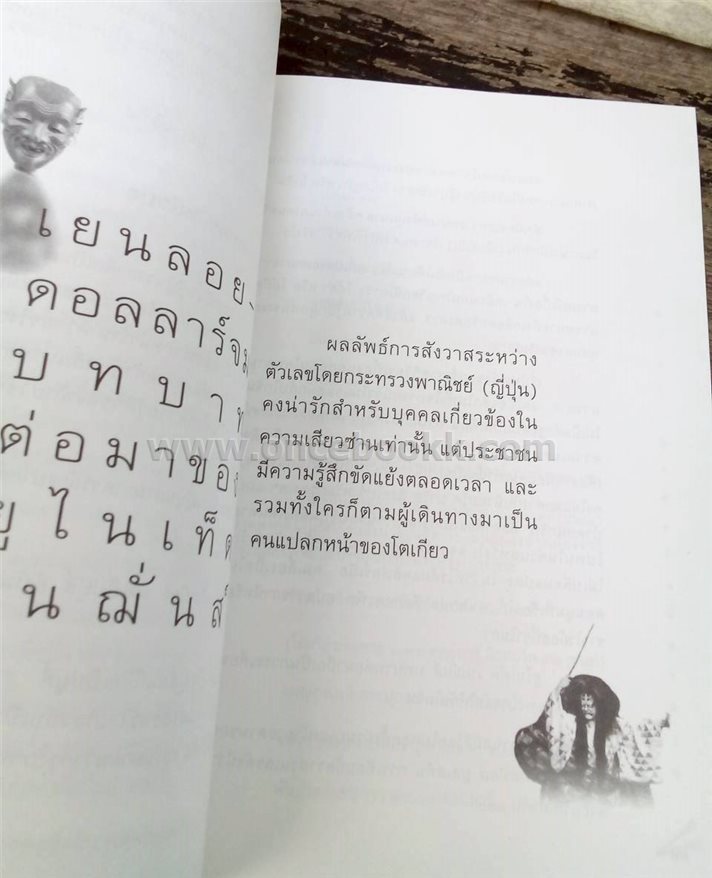 เยนลอย
ดอลลาร์จม
บทบา
ต่อมาของ
ยูไนเต็ด
นฌั่นส์
ผลลัพธ์การสังวาสระหว่าง
ตัวเลขโดยกระทรวงพาณิชย์ (ญี่ปุ่น)
คงน่ารักสำหรับบุคคลเกี่ยวข้องใน
ความเสียวซ่านเท่านั้น แต่ประชาชน
มีความรู้สึกขัดแย้งตลอดเวลา และ
รวมทั้งใครก็ตามผู้เดินทางมาเป็น
คนแปลกหน้าของโตเกียว
www.oncebookk.com